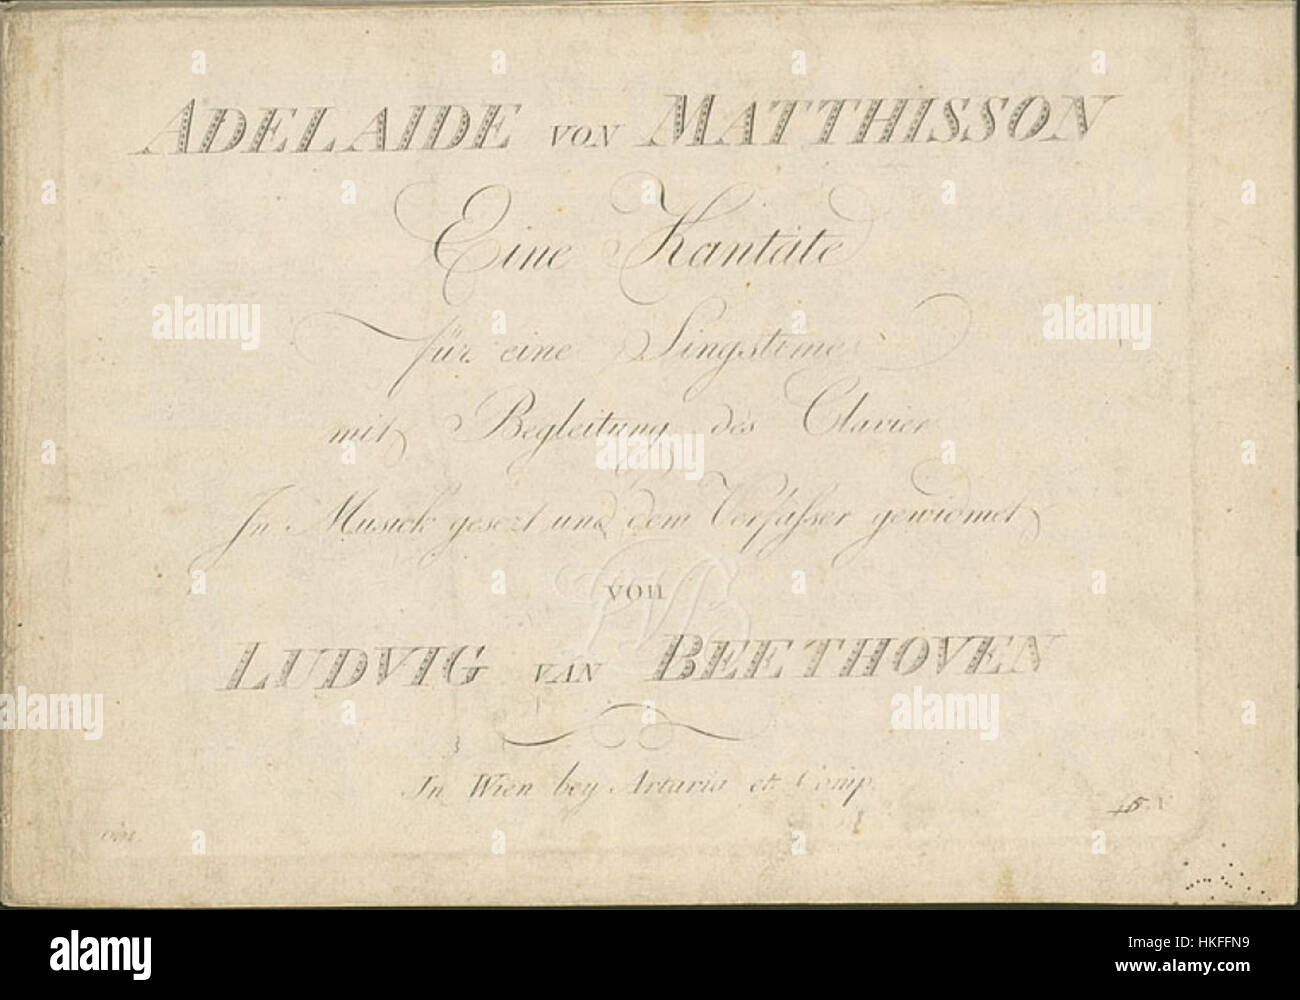 ADELAIDE VON MATTHISSON
Eine Kantate
für eine Singstime
mit Begleitung des Clavier
In Musick gesezt und dem Verfasser gewidmet
von
LUDVIG VAN BEETHOVEN
In Wien bey Artaria et Comp.
alamy
alamy
Image ID: HKFFN9
www.alamy.com